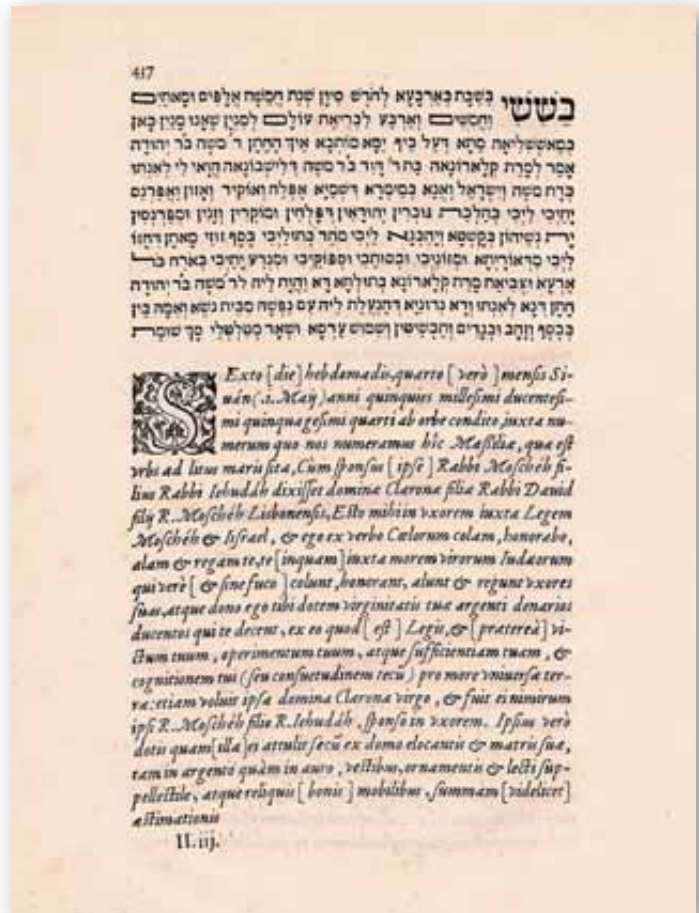 417
כששי בשבת בארבעא לחדש סיון שנת חמשה אלפים ומאתים
וחמשים וארבע לבריאת עולם למנין שאנו מנין כאן
במאששליאה מתא דעל כיף ימא מותבא איך החתן ר משה בר יהודה
אמר למרת קלארונאה בת ר דוד בר משה דלישבונאה הואי לי לאנתו
כדת משה וישראל ואנא במימרא דשמיא אפלח ואוקיר ואזון ואפרנס
יתיכי ליכי כהלכת גוברין יהודאין דפלחין ומוקרין וזנין ומפרנסין
ית נשיהון בקשטא ויהבנא ליכי מהר בתוליכי כסף זוזי מאתן דחזו
ליכי מדאוריתא ומזוניכי וכסותכי וספוקיכי ומנרע יתיכי כארח כל
ארעא וצביאת מרת קלארונא בתולתא דא והות ליה לר משה בר יהודה
חתן דנא לאנתו ודא נדוניא דהנעלת ליה עם נפשה מבית נשא ואמה בין
בכסף וזהב ובגדים ותכשיטין ושמוש ערסא ושאר מטלטלי סך שומת
SExto [die] hebdomadis, quarto [verò] mensis Si-
uán (.1. Maij) anni quinquies millesimi ducentesi-
mi quinquagesimi quarti ab orbe condito, iuxta nu-
merum quo nos numeramus hîc Massiliæ, quæ est
vrbs ad litus maris sita, Cùm sponsus [ipse] Rabbi Moschéh fi-
lius Rabbi Iehudáh dixisset dominæ Claronæ filiæ Rabbi Dauid
filij R. Moschéh Lisbonensis, Esto mihi in vxorem iuxta Legem
Moschéh & Iisrael, & ego ex verbo Cœlorum colam, honorabo,
alam & regam te, te [inquam] iuxta morem virorum Iudæorum
qui verè [& sine fuco] colunt, honorant, alunt & regunt vxores
suas, atque dono ego tibi dotem virginitatis tuæ argenti denarios
ducentos qui te decent, ex eo quod [est] Legis, & [præterea] vi-
ctum tuum, operimentum tuum, atque sufficientiam tuam, &
cognitionem tui (seu consuetudinem tecũ) pro more vniuersæ ter-
ræ: etiam voluit ipsa domina Clarona virgo, & fuit ei nimirum
ipsi R. Moschéh filio R. Iehudáh, sponso in vxorem. Ipsius verò
dotis quam [illa] ei attulit secũ ex domo elocantis & matris suæ,
tam in argento quàm in auro, vestibus, ornamentis & lecti sup-
pellectile, atque reliquis [bonis] mobilibus, summam [videlicet]
æstimationis
II.iij.